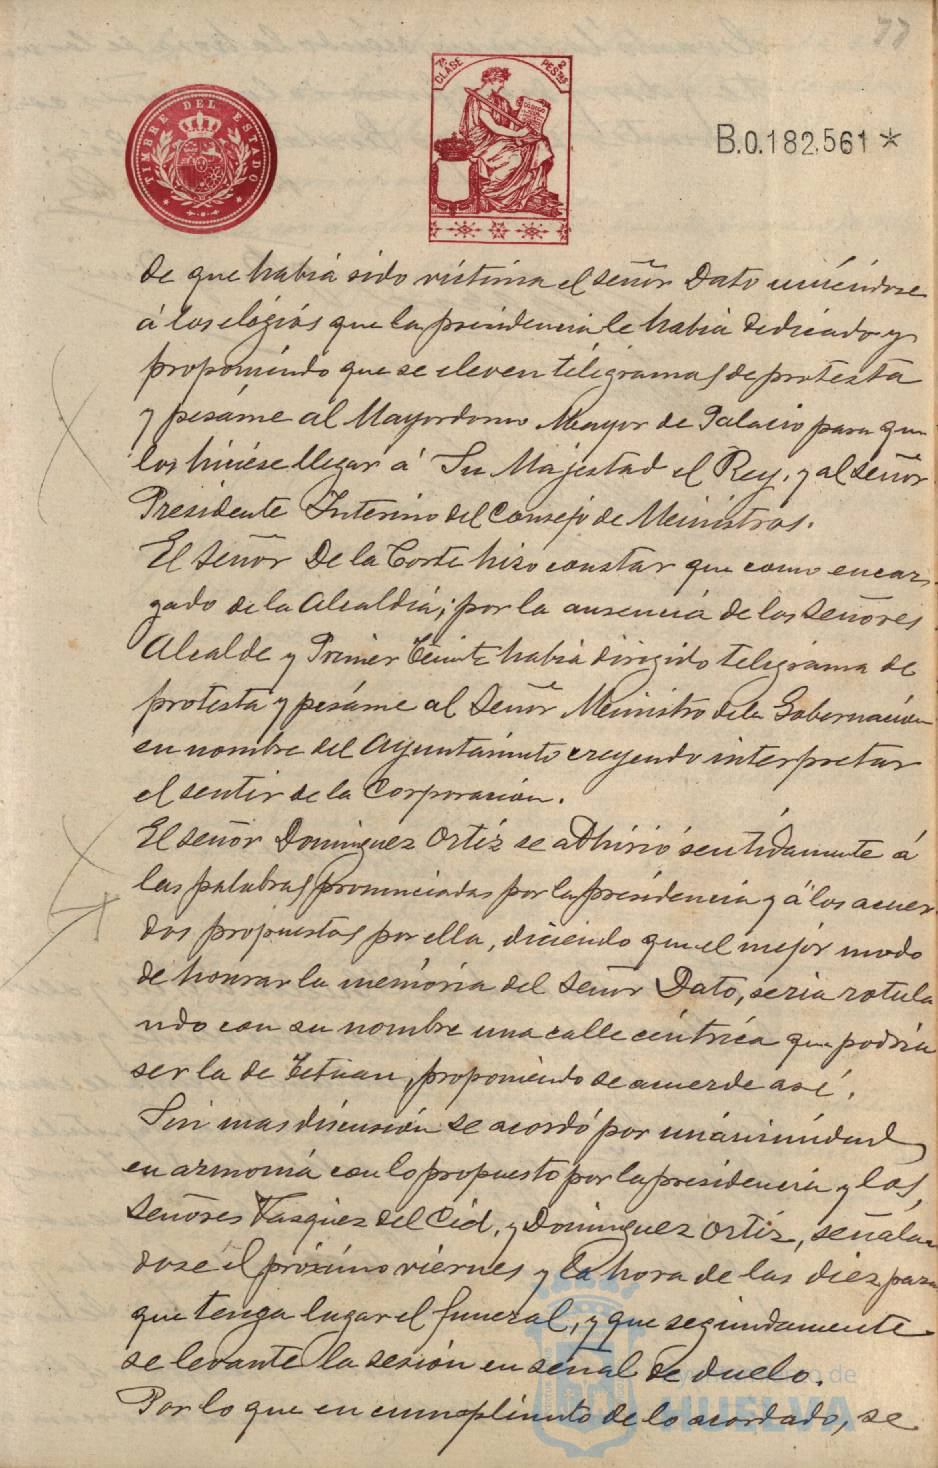 77
TIMBRE DEL ESTADO
7ª CLASE 2 PESTAS
B.0.182,561 *
de que habiá sido victima el señor Dato uniéndose
á los elógios que la presidencia le habia dedicado y
proponiéndo que se eleven télegramas de protesta
y pesáme al Mayordomo Mayor de Palacio para que
los hiciese llegar á Su Majestad el Rey, y al señor
Presidente Interino del Consejo de Ministros.
El señor De la Corte hizo constar que como encar-
gado de la Alcaldia; por la ausencia de los señores
Alcalde y Primer Teniente habia dirigido telegrama de
protesta y pesáme al Señor Ministro de la Gobernación
en nombre del Ayuntamiento creyendo interpretar
el sentir de la Corporación.
El señor Dominguez Ortiz se adhirió sentidamente á
las palabras pronunciadas por la presidencia y á los acuer-
dos propuestos por ella, diciendo que el mejor modo
de honrar la memória del señor Dato, seria rotula
ndo con su nombre una calle céntrica que podria
ser la de Tetuan, proponiendo se acuerde así.
Sin mas discusión se acordó por unánimidad
en armonia con lo propuesto por la presidencia y los,
señores Vasquez del Cid, y Dominguez Ortiz, señalan
dose el próximo viernes y la hora de las diez para
que tenga lugar el funeral, y que seguidamente
se levante la sesión en señal de duelo.
Por lo que en cumplimiento de lo acordado, se
Ayuntamiento de
HUELVA